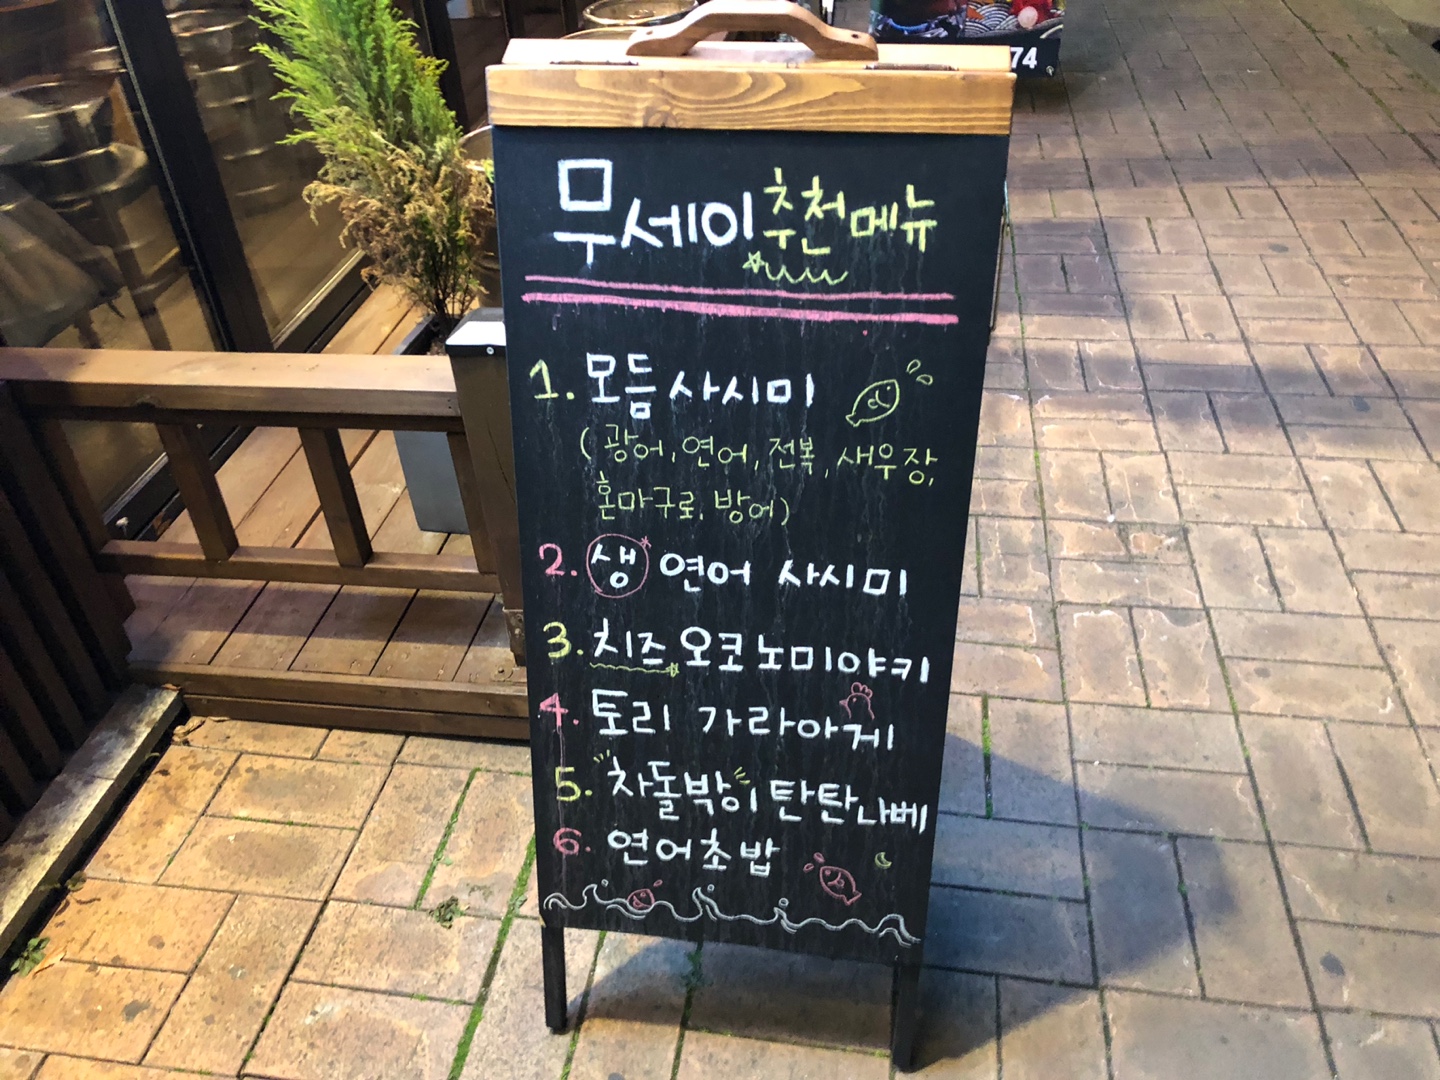 74
무세이 추천메뉴
1. 모듬 사시미
( 광어, 연어, 전복, 새우장,
혼마구로, 방어)
2. 생 연어 사시미
3. 치즈 오코노미야키
4. 토리 가라아게
5. 차돌박이 탄탄나베
6. 연어초밥